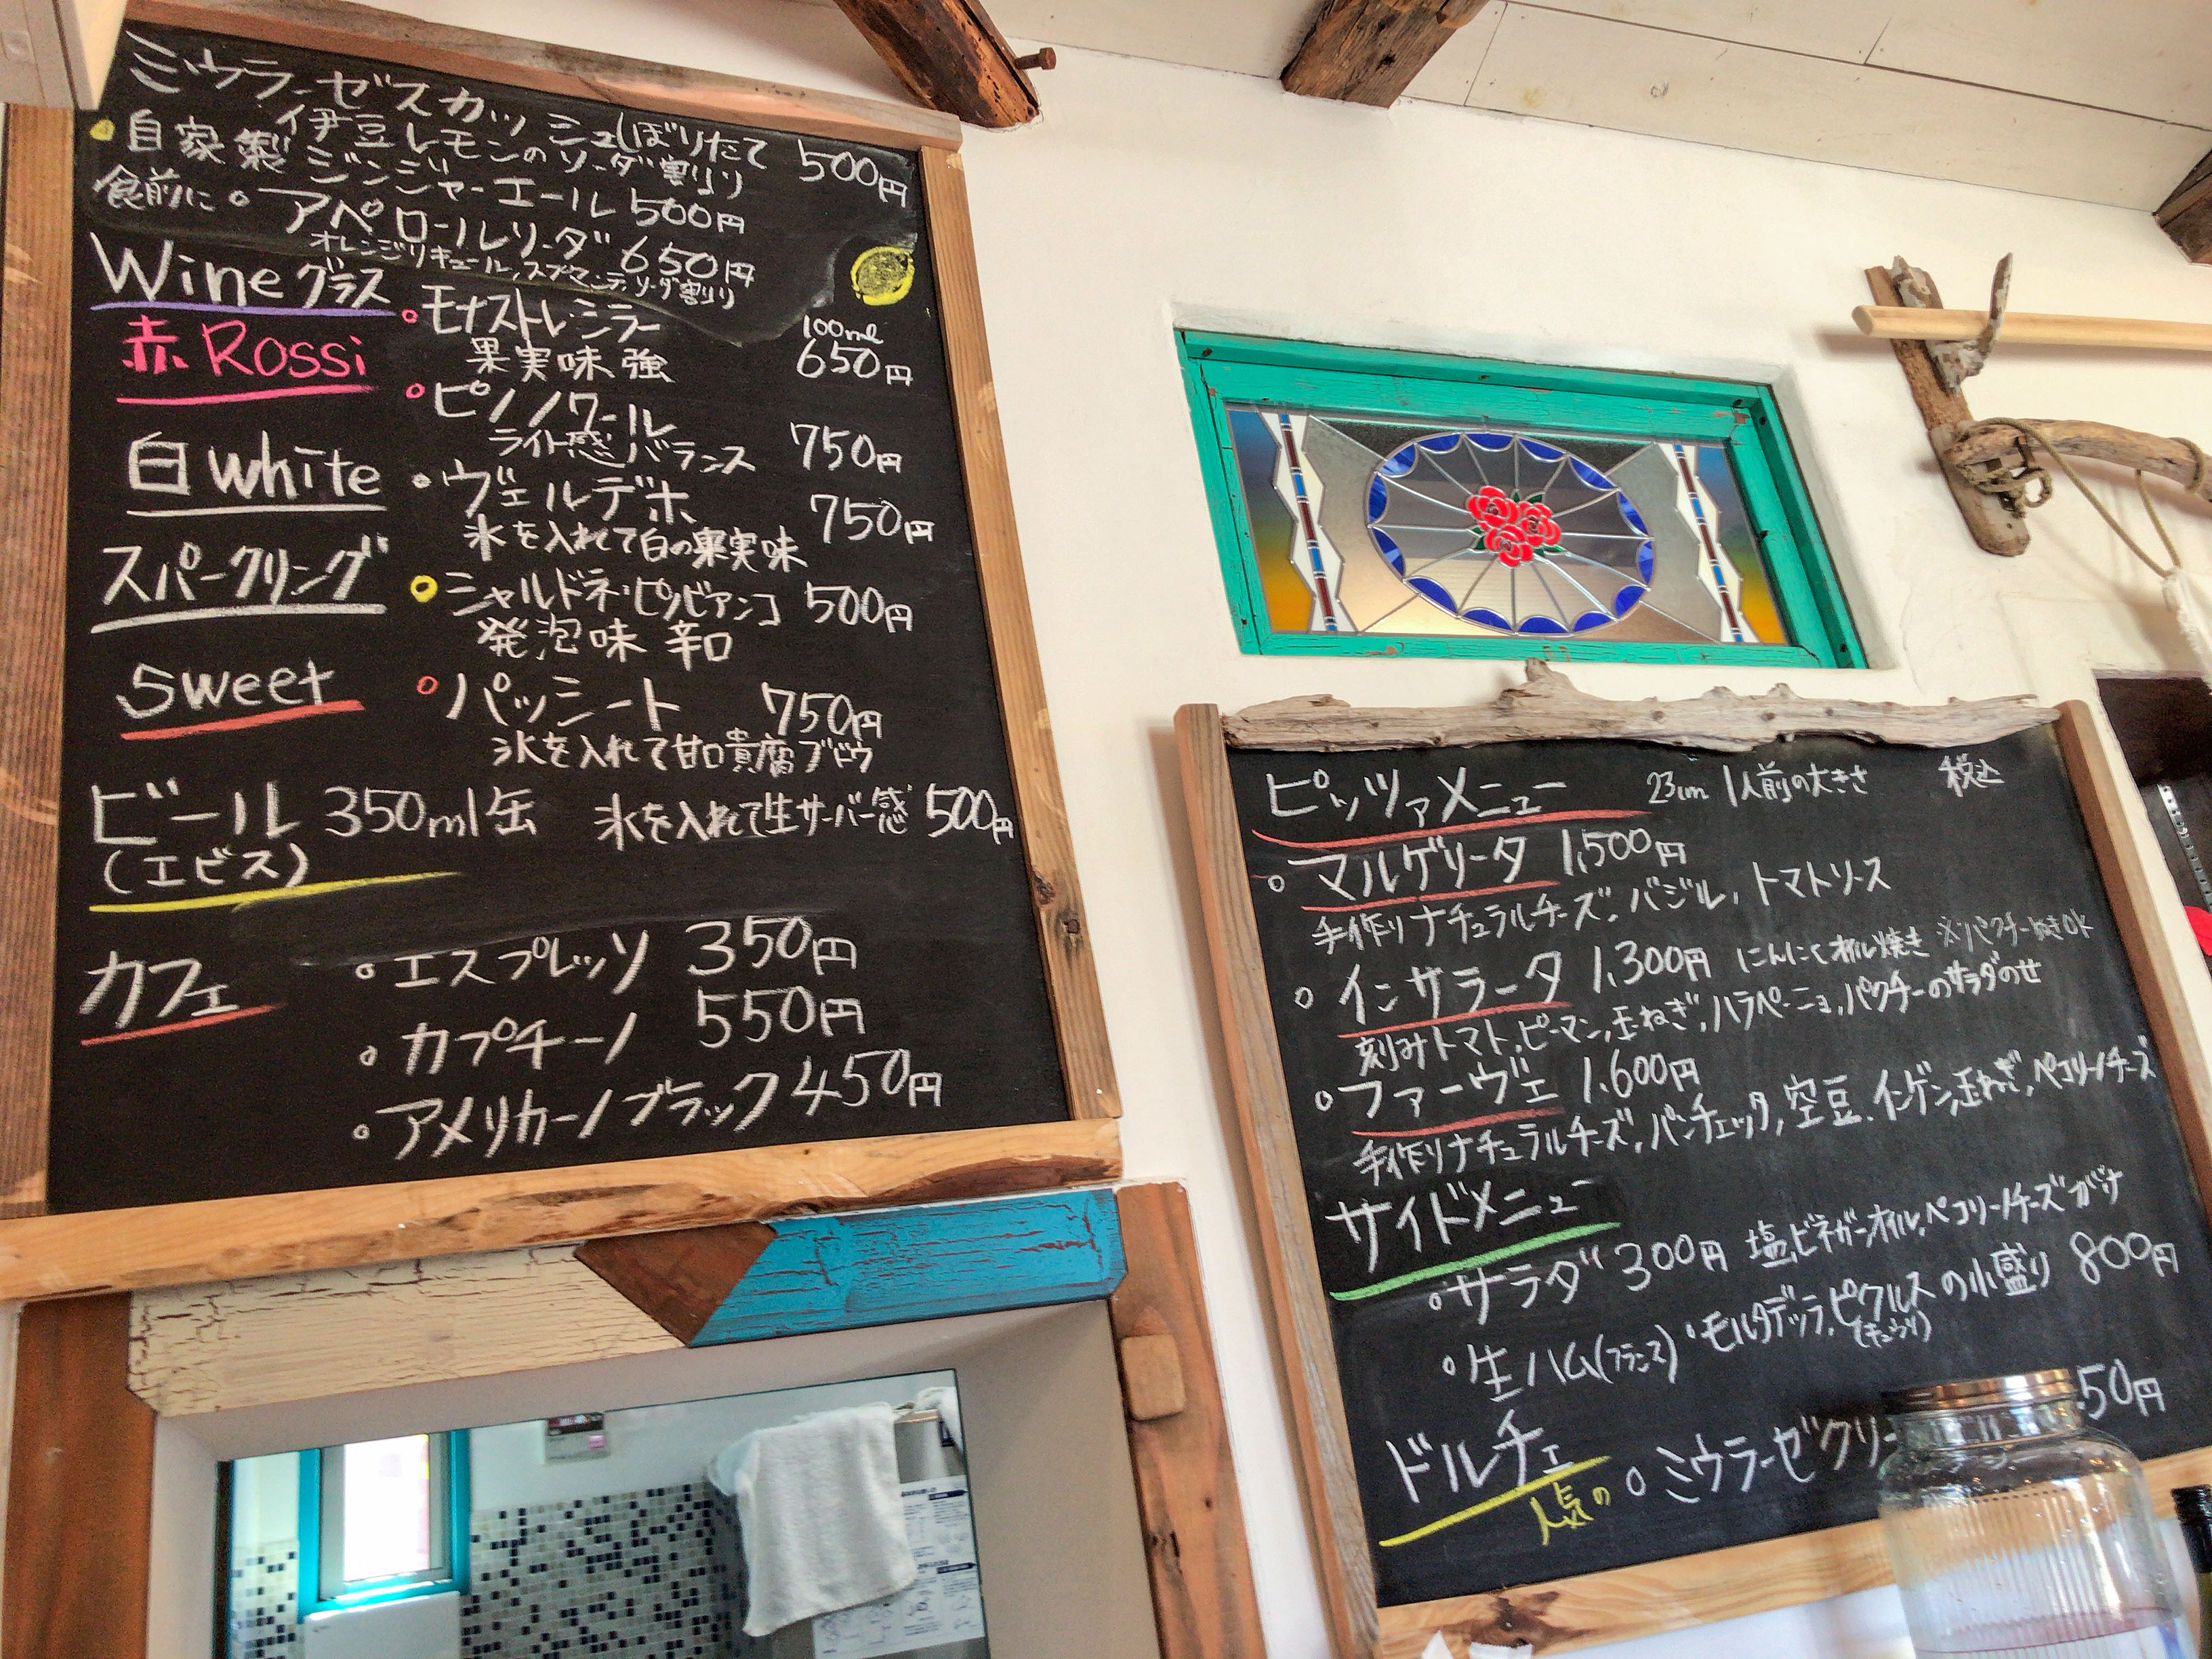 ミウラーゼスカッシュしぼりたて 500円
伊豆レモンのソーダ割り
自家製ジンジャーエール 500円
食前に アペロールソーダ 650円
オレンジリキュール、スプマンテ、ソーダ割り
Wineグラス
赤 Rossi モナストレ・シラー 100ml 650円
果実味 強
ピノノワール 750円
ライト感 バランス
白 white ヴェルデホ 750円
氷を入れて白の果実味
スパークリング シャルドネ・ピノビアンコ 500円
発泡味 辛口
sweet パッシート 750円
氷を入れて甘口貴腐ブドウ
ビール 350ml缶 氷を入れて生サーバー感 500円
(エビス)
カフェ エスプレッソ 350円
カプチーノ 550円
アメリカーノブラック 450円
ピッツァメニュー 23cm 1人前の大きさ 税込
マルゲリータ 1,500円
手作りナチュラルチーズ、バジル、トマトソース
インサラータ 1,300円 にんにくオイル焼き ※パクチーぬきOK
刻みトマト、ピーマン、玉ねぎ、ハラペーニョ、パクチーのサラダのせ
ファーヴェ 1,600円
手作りナチュラルチーズ、パンチェッタ、空豆、インゲン、玉ねぎ、ペコリーノチーズ
サイドメニュー
サラダ 300円 塩、ビネガー、オイル、ペコリーノチーズがけ
生ハム(フランス)・モルタデッラ、ピクルスの小盛り 800円
(キュウリ)
ドルチェ
人気の ミウラーゼクリー 50円